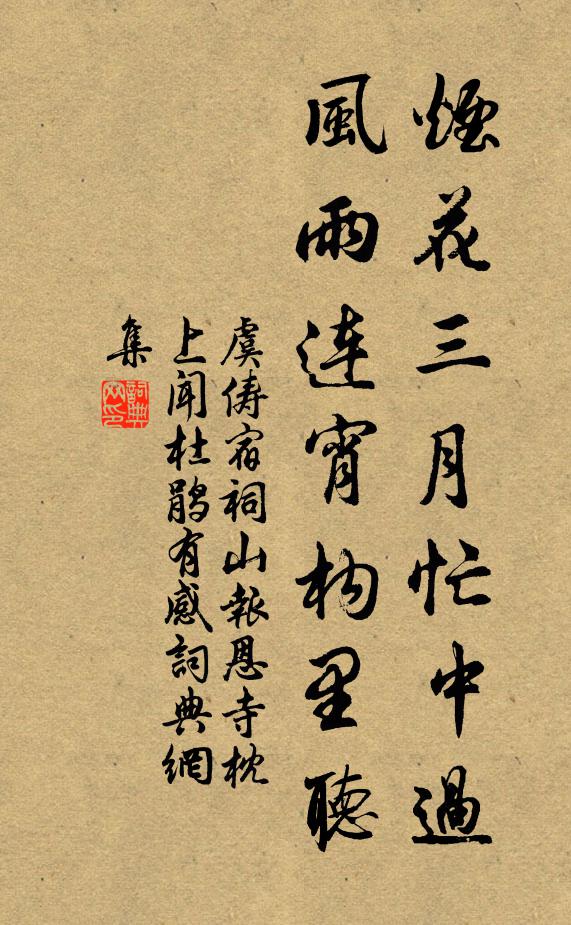 煙花三月忙中過
風雨連宵枕里聽
虞儔宿祠山報恩寺枕
上聞杜鵑有感詞典網
集
詞典
网印